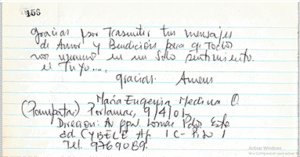 156
Gracias por Trasmitir tus mensajes
de Amor y Bendición para q Todos
nos unamos en un solo sentimiento
el Tuyo...
gracias. Amens
María Eugenia Medina O.
(Pampatar) Porlamar, 9/4/01
Direccion: Av ppal Lomas Este
ed CYBELE Ap 1C-
Tel. 9769089.
Activar Windows